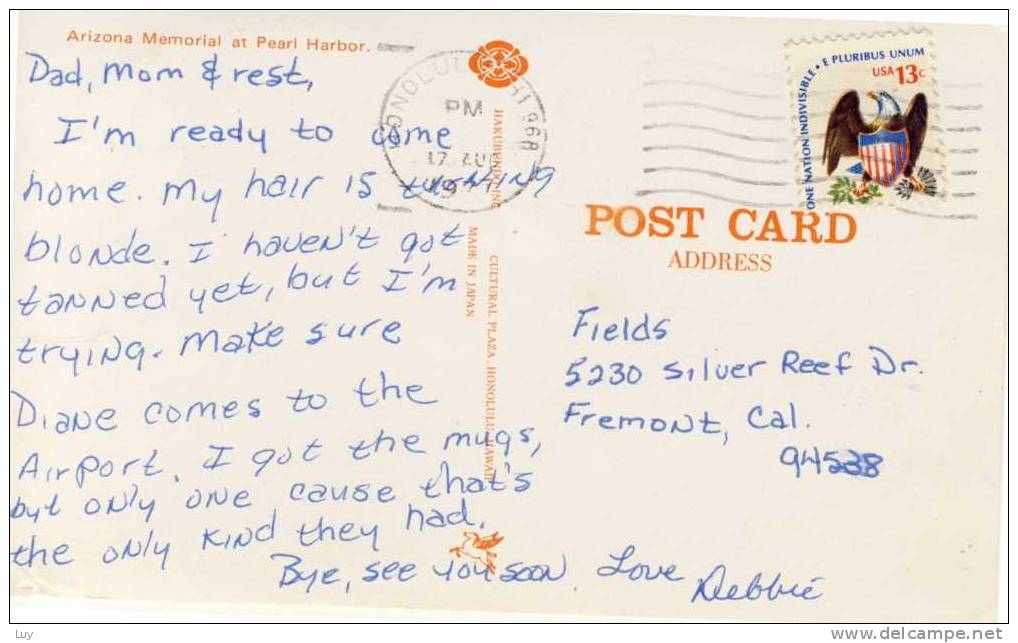 Arizona Memorial at Pearl Harbor.
Dad, Mom & rest,
I'm ready to come
home. My hair is turning
blonde. I haven't got
tanned yet, but I'm
trying. Make sure
Diane comes to the
Airport. I got the mugs,
but only one cause that's
the only kind they had.
Bye, see you soon. Love Debbie
HONOLULU HI 968
PM
17 AUG
MADE IN JAPAN
CULTURAL PLAZA, HONOLULU, HAWAII
ONE NATION INDIVISIBLE • E PLURIBUS UNUM
USA 13c
POST CARD
ADDRESS
Fields
5230 Silver Reef Dr.
Fremont, Cal.
94538
Luy
delcampe.net